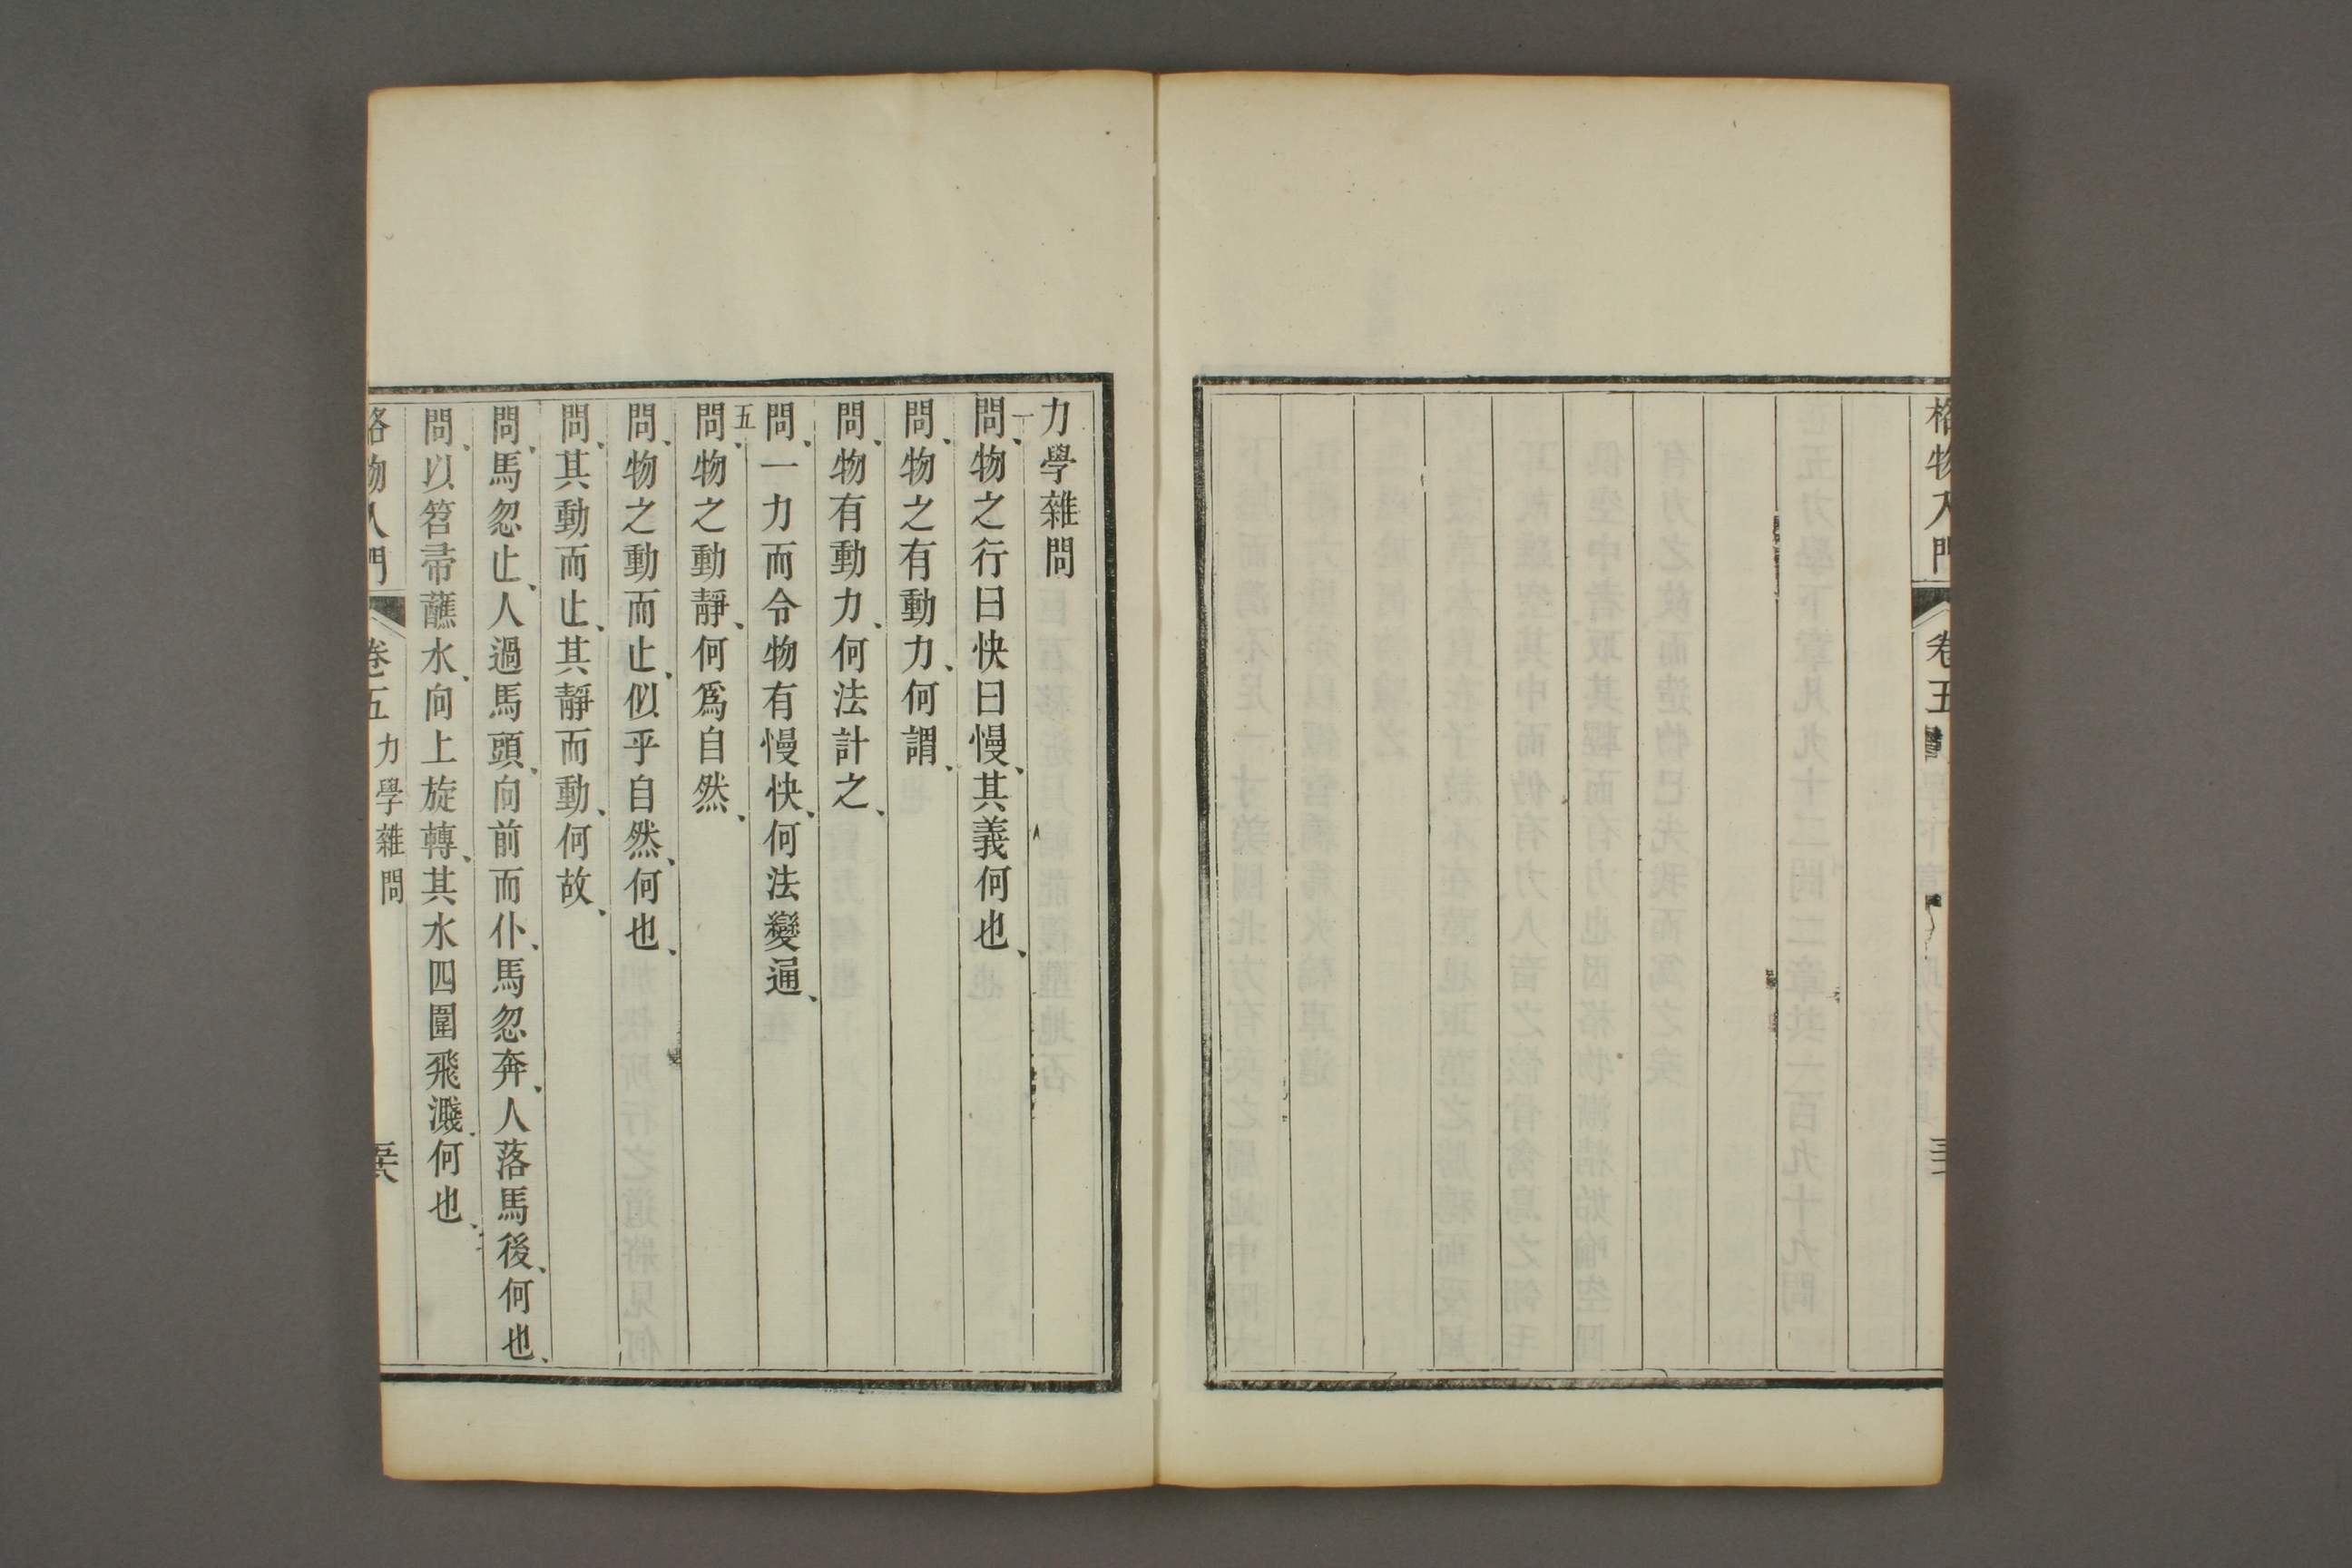 格物入門 卷五
力學雜問
一問、物之行曰快曰慢、其義何也、
問、物之有動力、何謂、
問、物有動力、何法計之、
問、一力而令物有慢快、何法變通、
五問、物之動靜、何爲自然、
問、物之動而止、似乎自然、何也、
問、其動而止、其靜而動、何故、
問、馬忽止、人過馬頭、向前而仆、馬忽奔、人落馬後、何也、
問、以笤帚蘸水、向上旋轉、其水四圍飛濺、何也、
格物入門 卷五 力學雜問